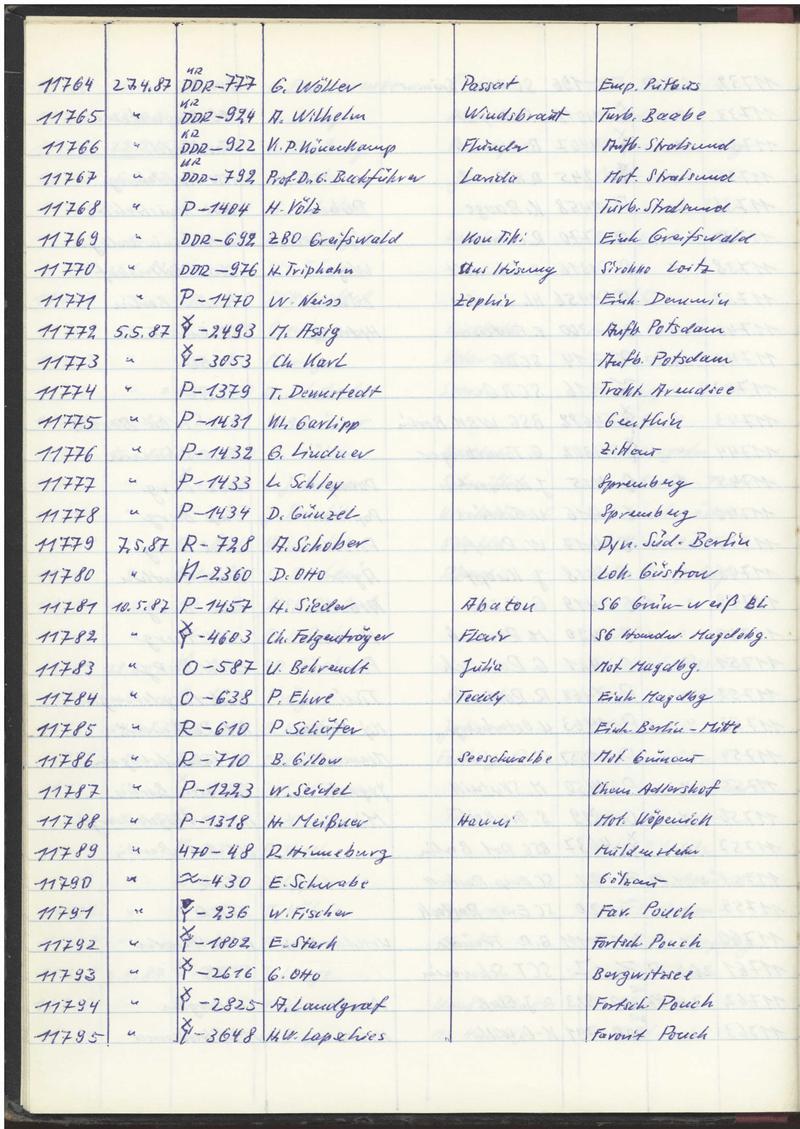 11764 27.4.87 KR DDR-777 G. Wölter Passat Emp. Putbus
11765 " KR DDR-924 A. Wilhelm Windsbraut Turb. Baabe
11766 " KR DDR-922 K.P. Könenkamp Flunder Aufb. Stralsund
11767 " KR DDR-792 Prof. Dr. G. Backführer Larida Mot. Stralsund
11768 " P-1404 H. Völz Turb. Stralsund
11769 " DDR-692 ZBO Greifswald Kon Tiki Einh. Greifswald
11770 " DDR-976 H. Triphahn Hüsung Sirokko Loitz
11771 " P-1470 W. Neiss Zephir Einh. Demmin
11772 5.5.87 -2493 M. Assig Aufb. Potsdam
11773 " -3053 Ch. Karl Aufb. Potsdam
11774 " P-1379 T. Dennstedt Trakt. Arendsee
11775 " P-1431 Kl. Garlipp Genthin
11776 " P-1432 G. Lindner Zittau
11777 " P-1433 L. Schley Spremberg
11778 " P-1434 D. Günzel Spremberg
11779 7.5.87 R-728 A. Schober Dyn. Süd-Berlin
11780 " -2360 D. Otto Lok. Güstrow
11781 10.5.87 P-1457 H. Sieder Abaton SG Grün-weiß Bln
11782 " -4603 Ch. Felgenträger Flair SG Handw. Magdebg.
11783 " O-587 U. Behrendt Julia Mot. Magdbg.
11784 " O-638 P. Ehve Teddy Einh. Magdbg
11785 " R-610 P. Schäfer Einh. Berlin-Mitte
11786 " R-710 B. Gilow Seeschwalbe Mot. Grünau
11787 " P-1223 W. Seidel Chem. Adlershof
11788 " P-1318 H. Meißner Hanni Mot. Köpenick
11789 " 470-48 R. Hinneburg Muldenstein
11790 " -430 E. Schwabe Gölzau
11791 " -236 W. Fischer Fav. Pouch
11792 " -1802 E. Stark Fortsch. Pouch
11793 " -2616 G. Otto Bergwitzsee
11794 " -2825 A. Landgraf Fortsch. Pouch
11795 " -3648 H.W. Lapschies Favorit Pouch